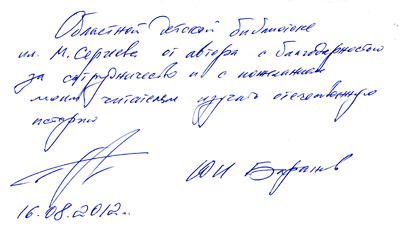 Областной детской библиотеке
им. М. Сергеева от автора с благодарностью
за сотрудничество и с пожеланием
моим читателям изучать отечественную
историю
Ю И Баранов
16.08.2012г.